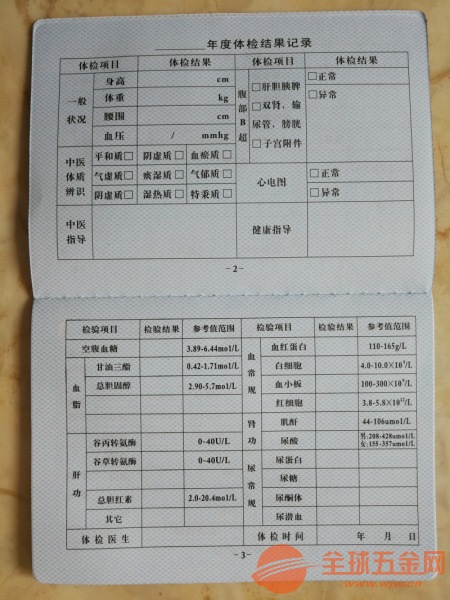 年度体检结果记录
体检项目 体检结果 体检项目 体检结果
一般状况 身高 cm 腹部B超 □肝胆胰脾 □正常
体重 kg □双肾,输尿管,膀胱 □异常
腰围 cm
血压 / mmhg □子宫附件
中医体质辨识 平和质□ 阴虚质□ 血瘀质□ 心电图 □正常
气虚质□ 痰湿质□ 气郁质□ □异常
阴虚质□ 湿热质□ 特秉质□
中医指导 健康指导
-2-
检验项目 检验结果 参考值范围 检验项目 检验结果 参考值范围
空腹血糖 3.89-6.44mol/L 血常规 血红蛋白 110-165g/L
血脂 甘油三酯 0.42-1.71mol/L 白细胞 4.0-10.0×10⁹/L
总胆固醇 2.90-5.7mol/L 血小板 100-300×10⁹/L
红细胞 3.8-5.8×10¹²/L
肾功 肌酐 44-106umol/L
肝功 谷丙转氨酶 0-40U/L 尿酸 男:208-428umol/L
女:155-357umol/L
谷草转氨酶 0-40U/L 尿常规 尿蛋白
尿糖
总胆红素 2.0-20.4mol/L 尿酮体
其它 尿潜血
体检医生 体检时间 年 月 日
-3-
全球五金网